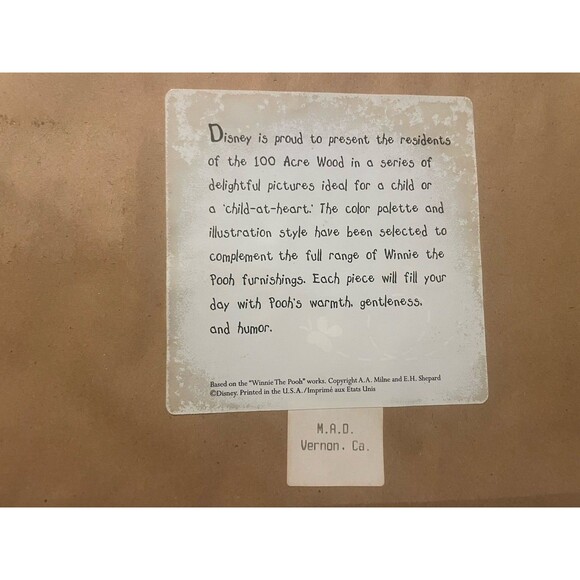 Disney is proud to present the residents
of the 100 Acre Wood in a series of
delightful pictures ideal for a child or
a 'child-at-heart.' The color palette and
illustration style have been selected to
complement the full range of Winnie the
Pooh furnishings. Each piece will fill your
day with Pooh's warmth, gentleness,
and humor.
Based on the "Winnie The Pooh" works, Copyright A.A. Milne and E.H. Shepard
©Disney. Printed in the U.S.A./Imprimé aux Etats Unis
M.A.D.
Vernon, Ca.